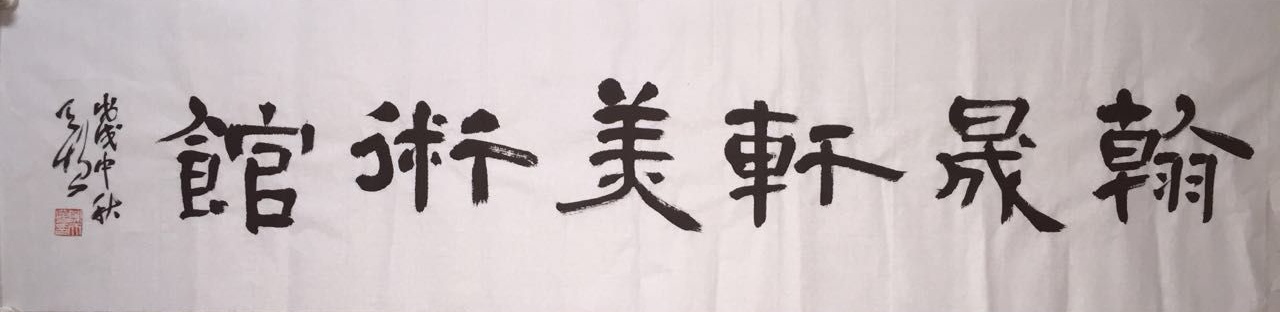 翰晟軒美術館
戊戌中秋